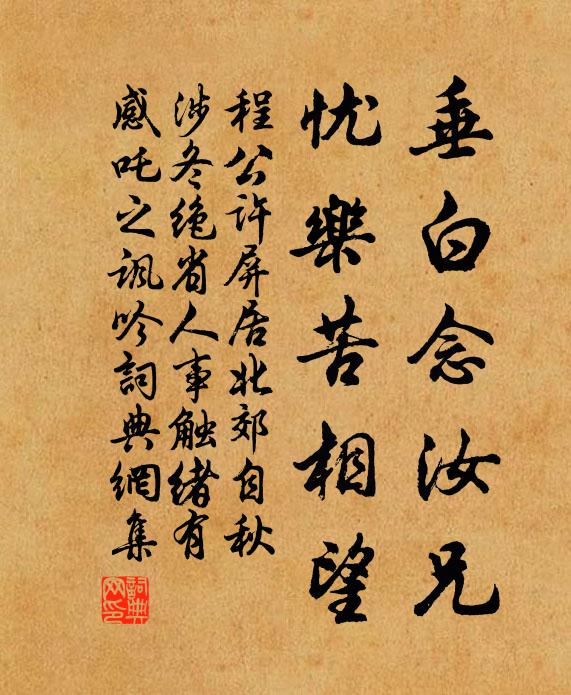 垂白念汝兄
忧樂苦相望
程公许屏居北郊自秋
涉冬绝省人事触绪有
感吒之讽吟詞典網集
詞典
网印